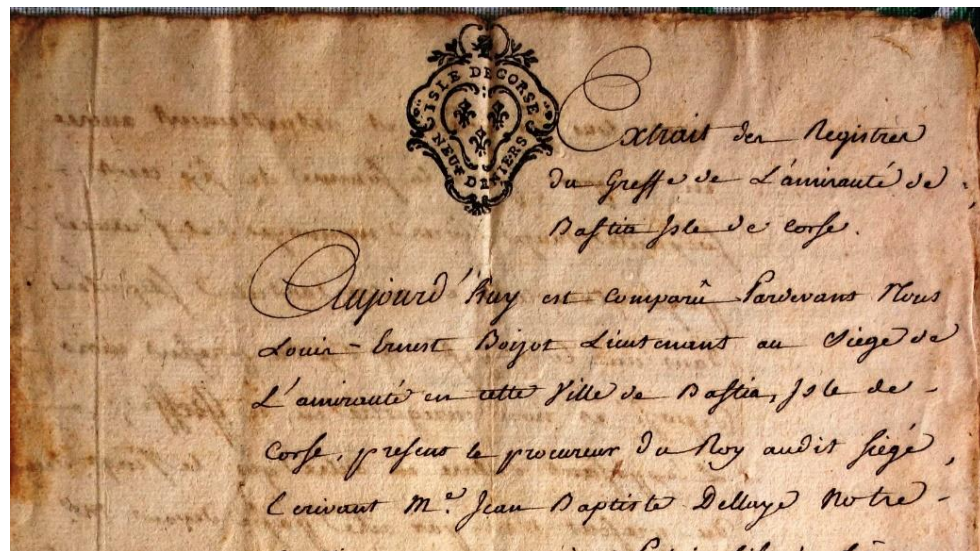 ISLE DE CORSE
NEUF DENIERS
Extrait des Registres
du Greffe de L'amirauté de
Bastia Isle de Corse.
Aujourd'huy est comparû Pardevant Nous
Louis - Ernest Boizot Lieutenant au Siége de
L'amirauté en cette Ville de Bastia, Isle de -
Corse, present le procureur du Roy audit siégé,
Ecrivant M.e Jean Baptiste Notre -